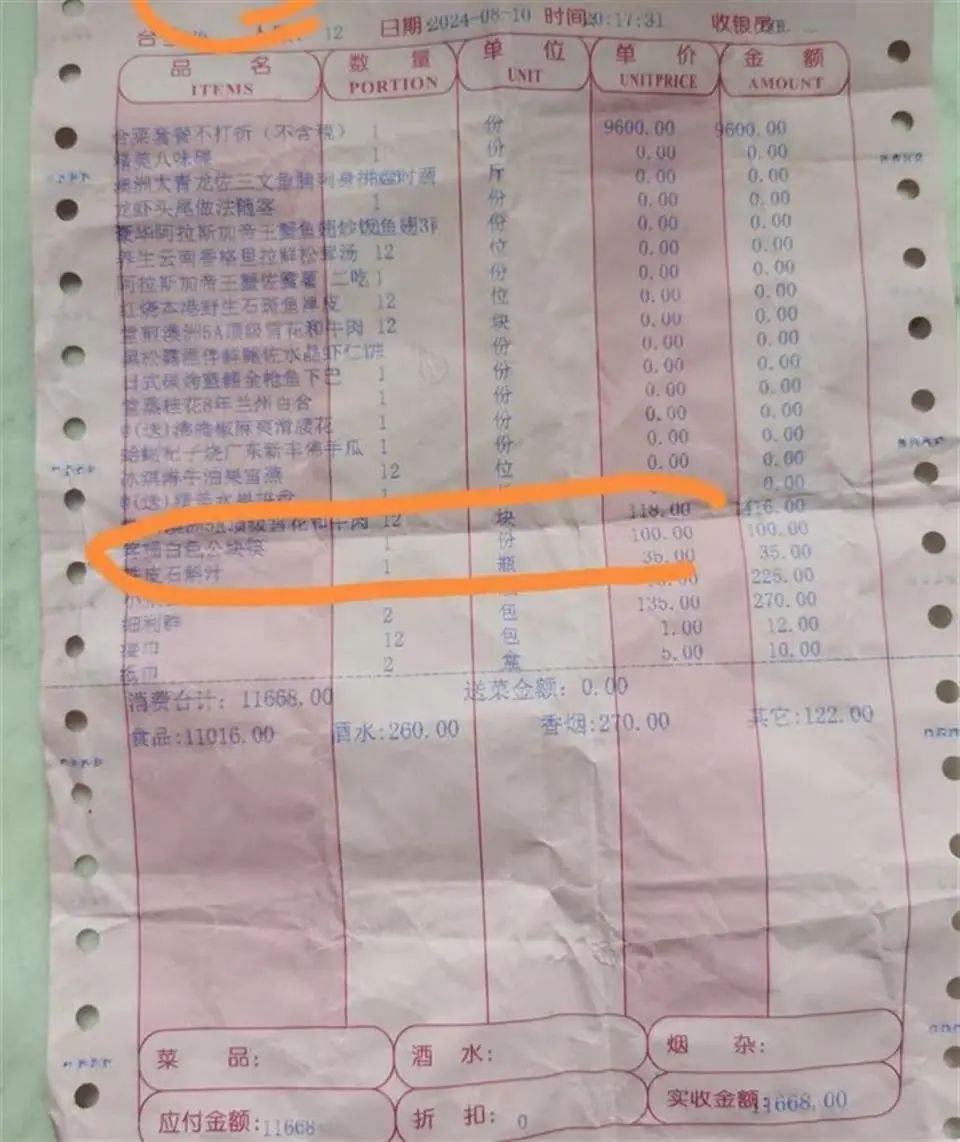 12 日期:2024-08-10 时间20:17:31 收银员
品名 数量 单位 单价 金额
ITEMS PORTION UNIT UNITPRICE AMOUNT
套餐不打折（不含税） 1 份 9600.00 9600.00
精美八味碟 1 份 0.00 0.00
澳洲大青龙佐三文鱼腩刺身 斤 0.00 0.00
龙虾头尾做法随客 1 份 0.00 0.00
豪华阿拉斯加帝王蟹鱼翅炒饭鱼翅 份 0.00 0.00
养生云南香格里拉鲜松茸汤 12 位 0.00 0.00
阿拉斯加帝王蟹佐 二吃 1 份 0.00 0.00
红烧本港野生石斑鱼厚皮 12 位 0.00 0.00
堂煎澳洲5A顶级雪花和牛肉 12 块 0.00 0.00
佐水晶虾仁饼 份 0.00 0.00
日式 金枪鱼下巴 1 份 0.00 0.00
堂蒸桂花8年兰州百合 1 份 0.00 0.00
@(送) 椒麻爽滑腰花 1 份 0.00 0.00
杞子烧广东新丰佛手瓜 1 份 0.00 0.00
冰淇淋牛油果官燕 12 位 0.00 0.00
@(送)精美水果拼盘 1 0.00 0.00
5A顶级雪花和牛肉 12 块 118.00 1416.00
白色公 筷 1 份 100.00 100.00
铁皮石斛汁 1 瓶 35.00 35.00
225.00
细利群 2 包 135.00 270.00
12 包 1.00 12.00
纸巾 2 盒 5.00 10.00
消费合计: 11668.00 送菜金额: 0.00
食品:11016.00 酒水:260.00 香烟:270.00 其它:122.00
菜品: 酒水: 烟杂:
应付金额:11668 折扣: 0 实收金额:11668.00